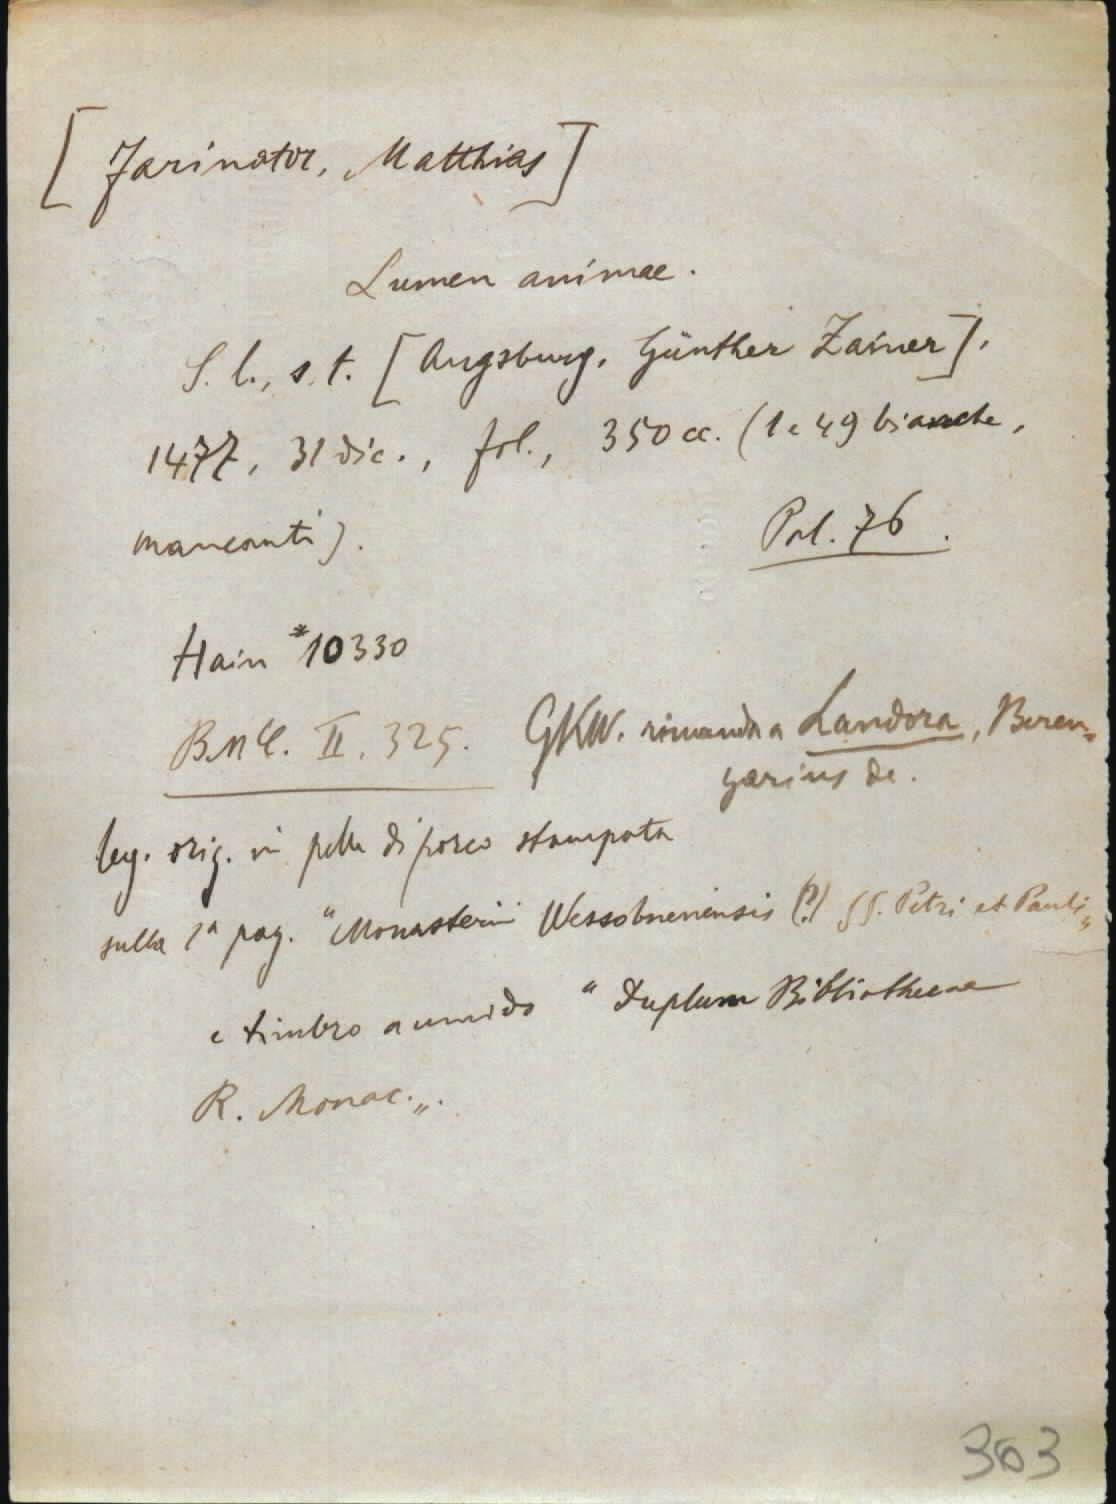 [Farinator, Matthias]
Lumen animae.
S. l., s. t. [Augsburg, Günther Zainer],
1477, 31 dic., fol., 350 cc. (1 e 49 bianche,
mancanti).
Pol. 76.
Hain *10330
BMC. II, 325.
GKW. rimanda a Landora, Beren-
garius de.
leg. orig. in pelle di porco stampata
sulla 1ª pag. "Monasterii Wessobrunensis (?) SS. Petri et Pauli„
e timbro a umido "Duplum Bibliothecae
R. Monac.„.
363